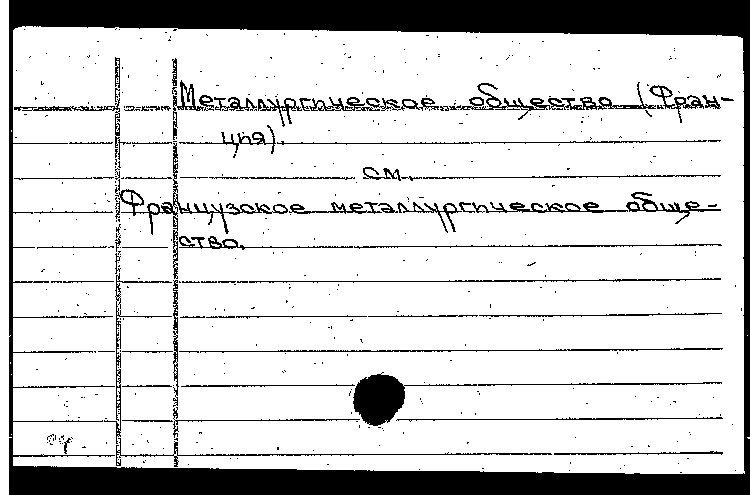 Металлургическое общество (Фран-
ция).
см.
Французское металлургическое обще-
ство.